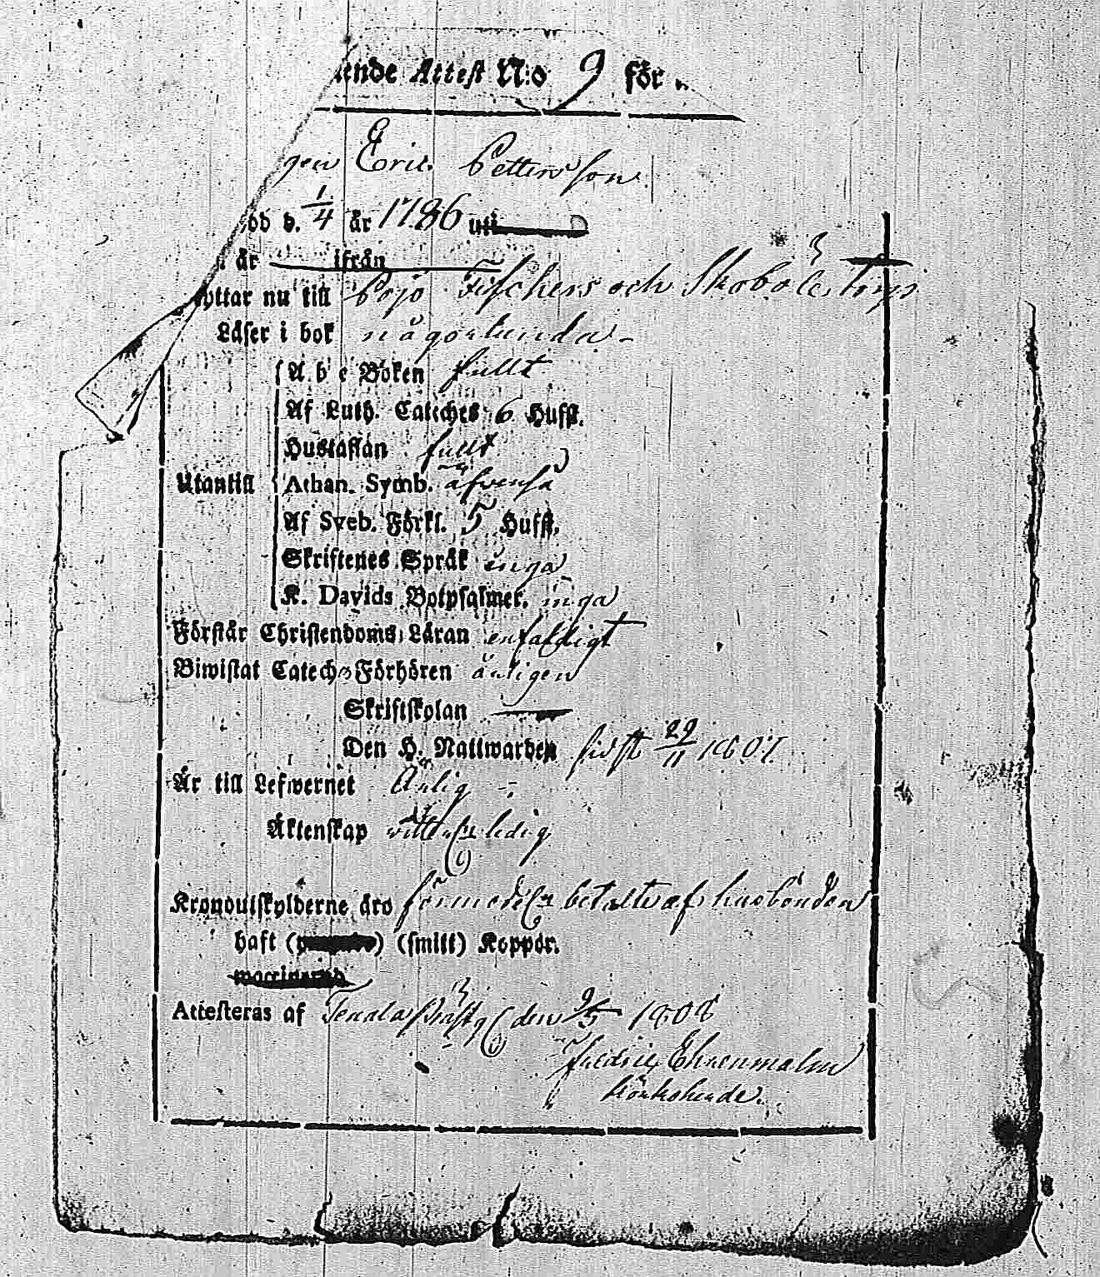 ende Attest N:o 9 för
gen Eric Pettersson
dd d. 1/4 år 1786 uti
år ifrån
yttar nu till Pojo Fischers och Skobäle torp
Läser i bok någorlunda
A b c Boken fullt
Af Luth. Cateches 6 Hufst.
Hustaflan fullt
Utantill Athan. Symb. äfvenså
Af Sveb. Förkl. 5 Hufst.
Skriftenes Språk inga
K. Davids Botpsalmer. inga
Förstår Christendoms Läran enfaldigt
Biwistat Catech. Förhören årligen
Skriftskolan
Den H. Nattwarden sidst 29/11 1807
Är till Lefwernet Ärlig
Äktenskap ledig
Kronoutskylderne äro betalte af husbonden
haft ( ) (smitt) Koppor.
Attesteras af Tenala den 9/5 1808
Fredric Ehrenmalm